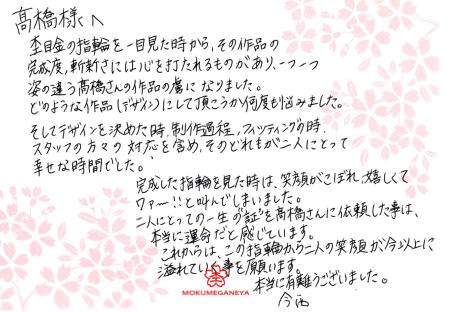 高橋様へ
杢目金の指輪を一目見た時から、その作品の
完成度,斬新さには心を打たれるものがあり、一つ一つ
姿の違う高橋さんの作品の虜になりました。
どのような作品(デザイン)にして頂こうか何度も悩みました。
そしてデザインを決めた時,制作過程,フィッティングの時.
スタッフの方々の対応を含め,そのどれもが二人にとって
幸せな時間でした。
完成した指輪を見た時は、笑顔がこぼれ,嬉しくて
ワァ〜!!と叫んでしまいました。
二人にとっての一生の"証"を高橋さんに依頼した事は、
本当に運命だと感じています。
これからは、この指輪から二人の笑顔が今以上に
溢れていく事を願います。
本当に有難うございました。
MOKUMEGANEYA